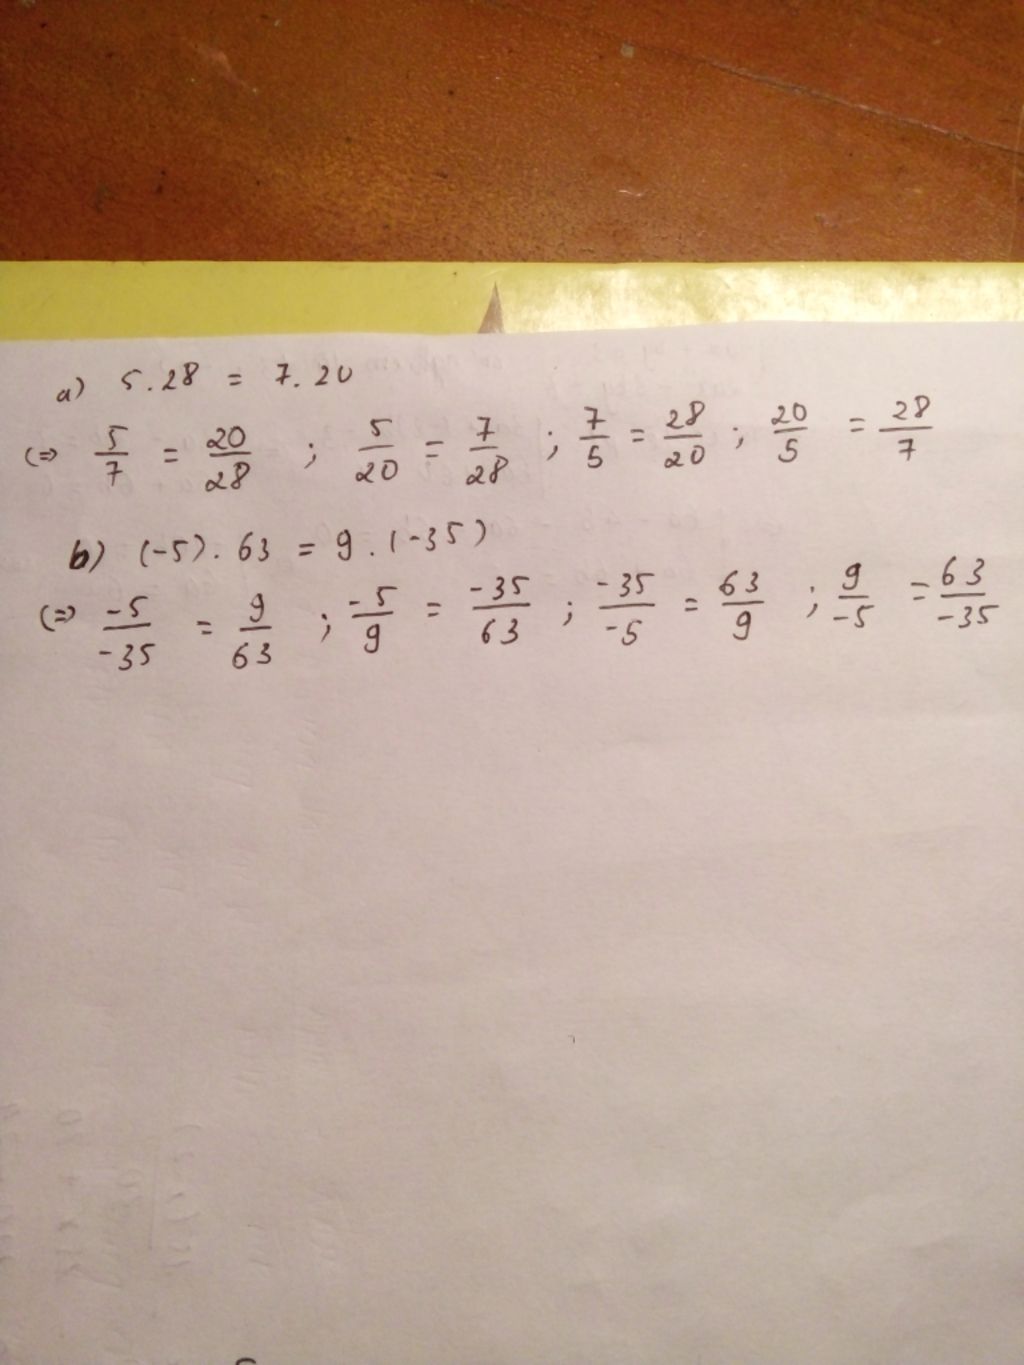 a) 5.28 = 7.20
(=) 5/7 = 20/28 ; 5/20 = 7/28 ; 7/5 = 28/20 ; 20/5 = 28/7
b) (-5). 63 = 9 . (-35)
(=) -5/-35 = 9/63 ; -5/9 = -35/63 ; -35/-5 = 63/9 ; 9/-5 = 63/-35